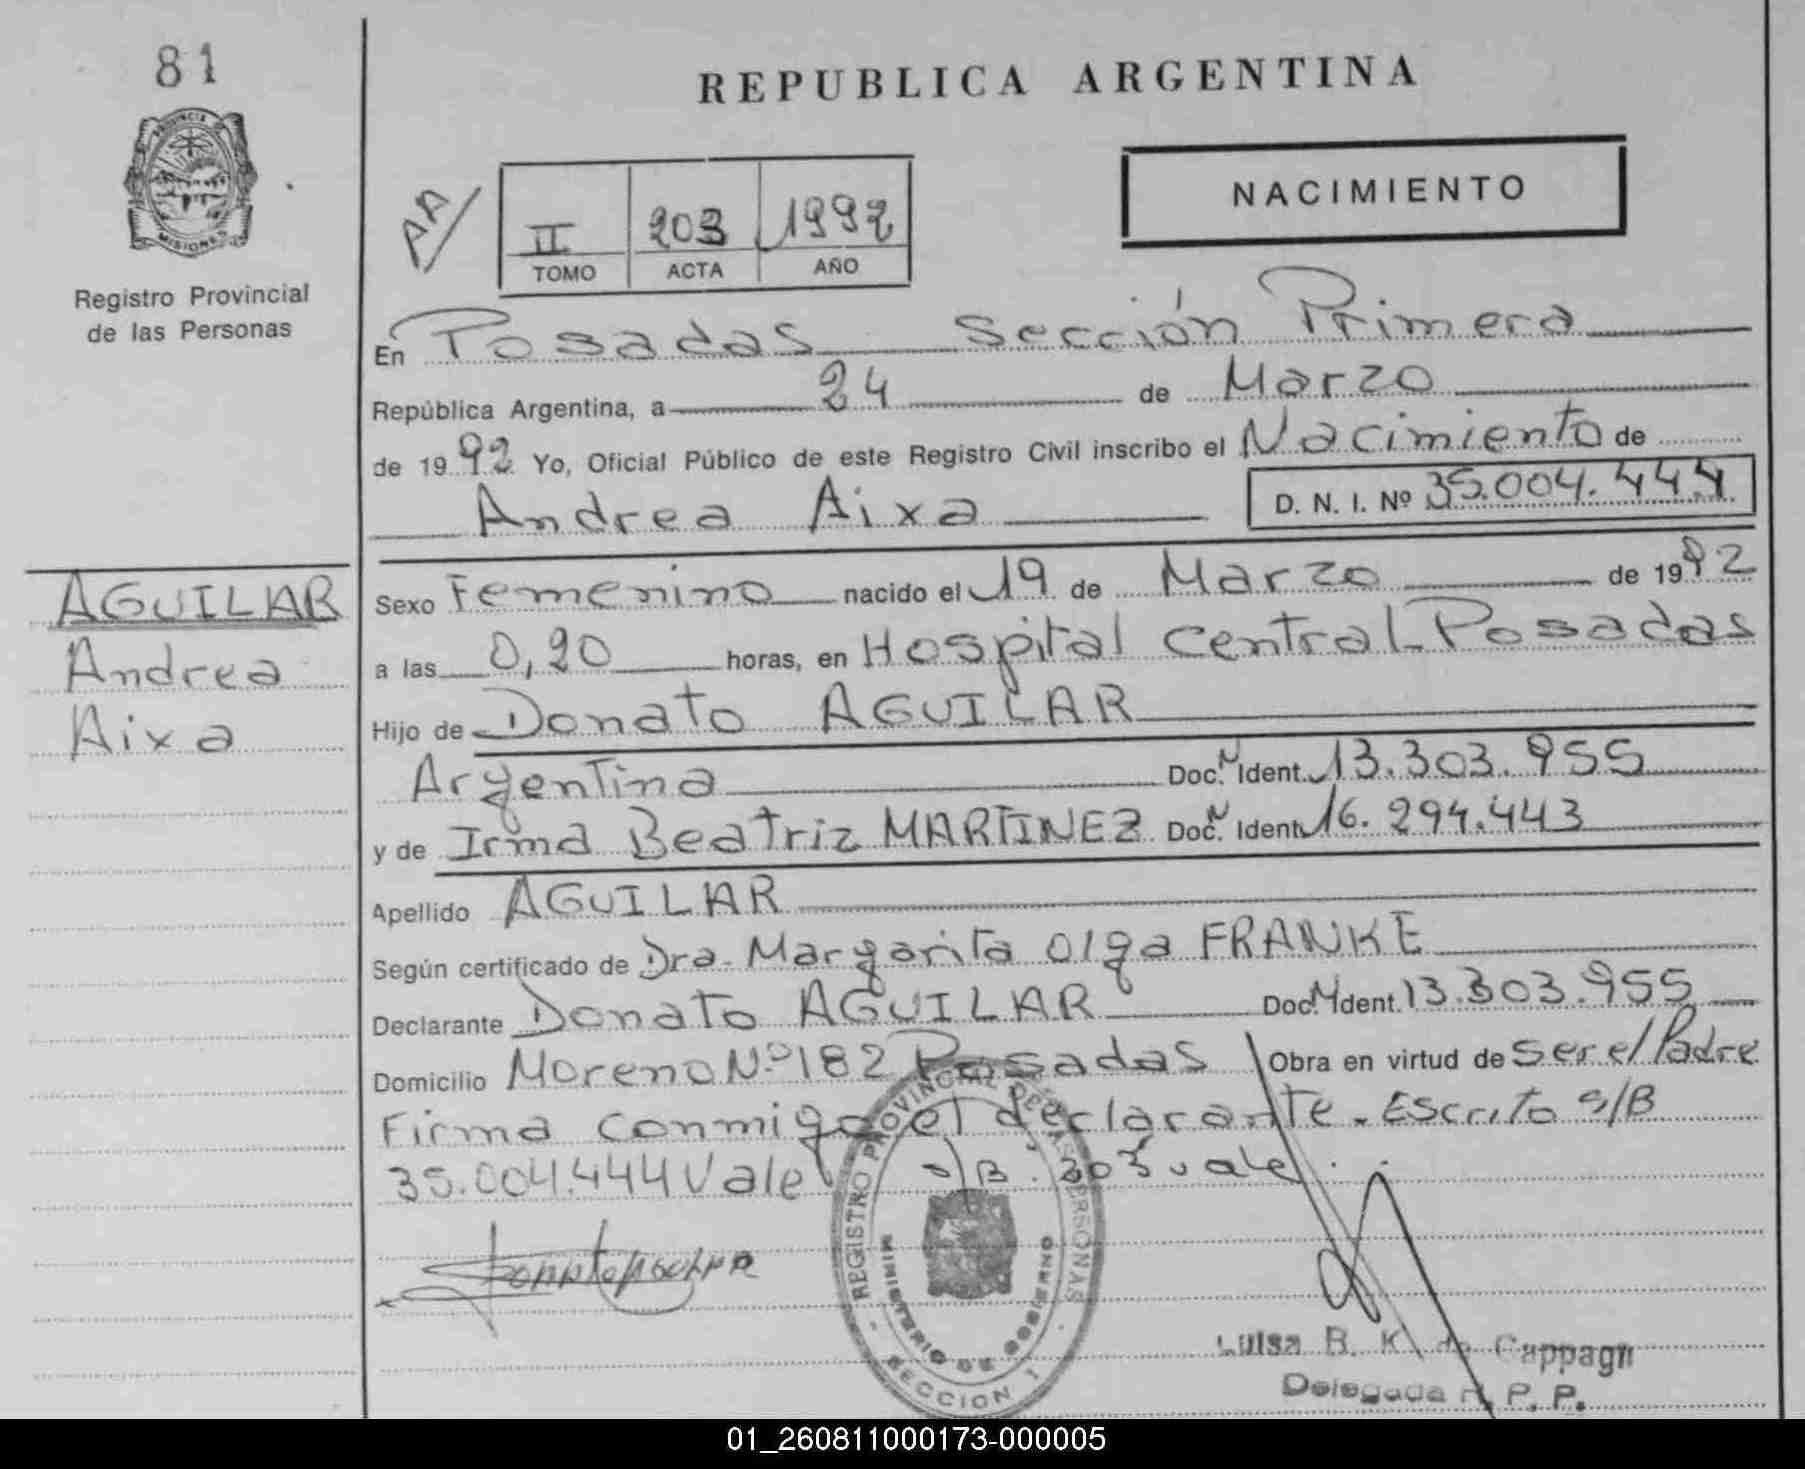 81
PROVINCIA DE
MISIONES
Registro Provincial
de las Personas
REPUBLICA ARGENTINA
NACIMIENTO
AA/
II 203 1992
TOMO ACTA AÑO
En Posadas Sección Primera
República Argentina, a 24 de Marzo
de 1992 Yo, Oficial Público de este Registro Civil inscribo el Nacimiento de
Andrea Aixa D. N. I. Nº 35.004.444
AGUILAR
Andrea
Aixa
Sexo Femenino nacido el 19 de Marzo de 1992
a las 0,20 horas, en Hospital Central Posadas
Hijo de Donato AGUILAR
Argentina Doc. N Ident. 13.303.955
y de Irma Beatriz MARTINEZ Doc. N Ident. 16.294.443
Apellido AGUILAR
Según certificado de Dra. Margarita Olga FRANKE
Declarante Donato AGUILAR Doc. N Ident. 13.303.955
Domicilio Moreno Nº 182 Posadas Obra en virtud de ser el Padre
Firma conmigo el declarante. Escrito s/B
35.004.444 Vale s/B. 203 vale
REGISTRO PROVINCIAL DE LAS PERSONAS
MINISTERIO DE GOBIERNO
SECCION 1
Luisa B. K. de Cappagn
Delegada R. P. P.
01_260811000173-000005